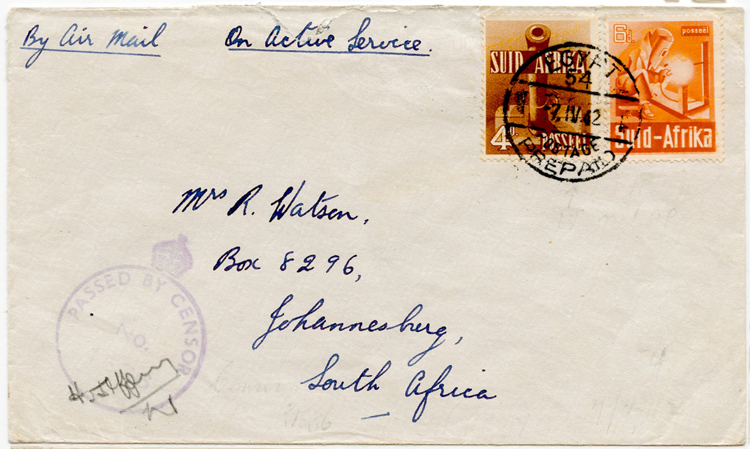 By Air Mail On Active Service.
SUID AFRIKA
4D. POSSEËL
6D posseël
Suid-Afrika
EGYPT
54
7 IV 42
POSTAGE
PREPAID
Mrs R. Watson,
Box 8296,
Johannesburg,
South Africa
PASSED BY CENSOR
No.